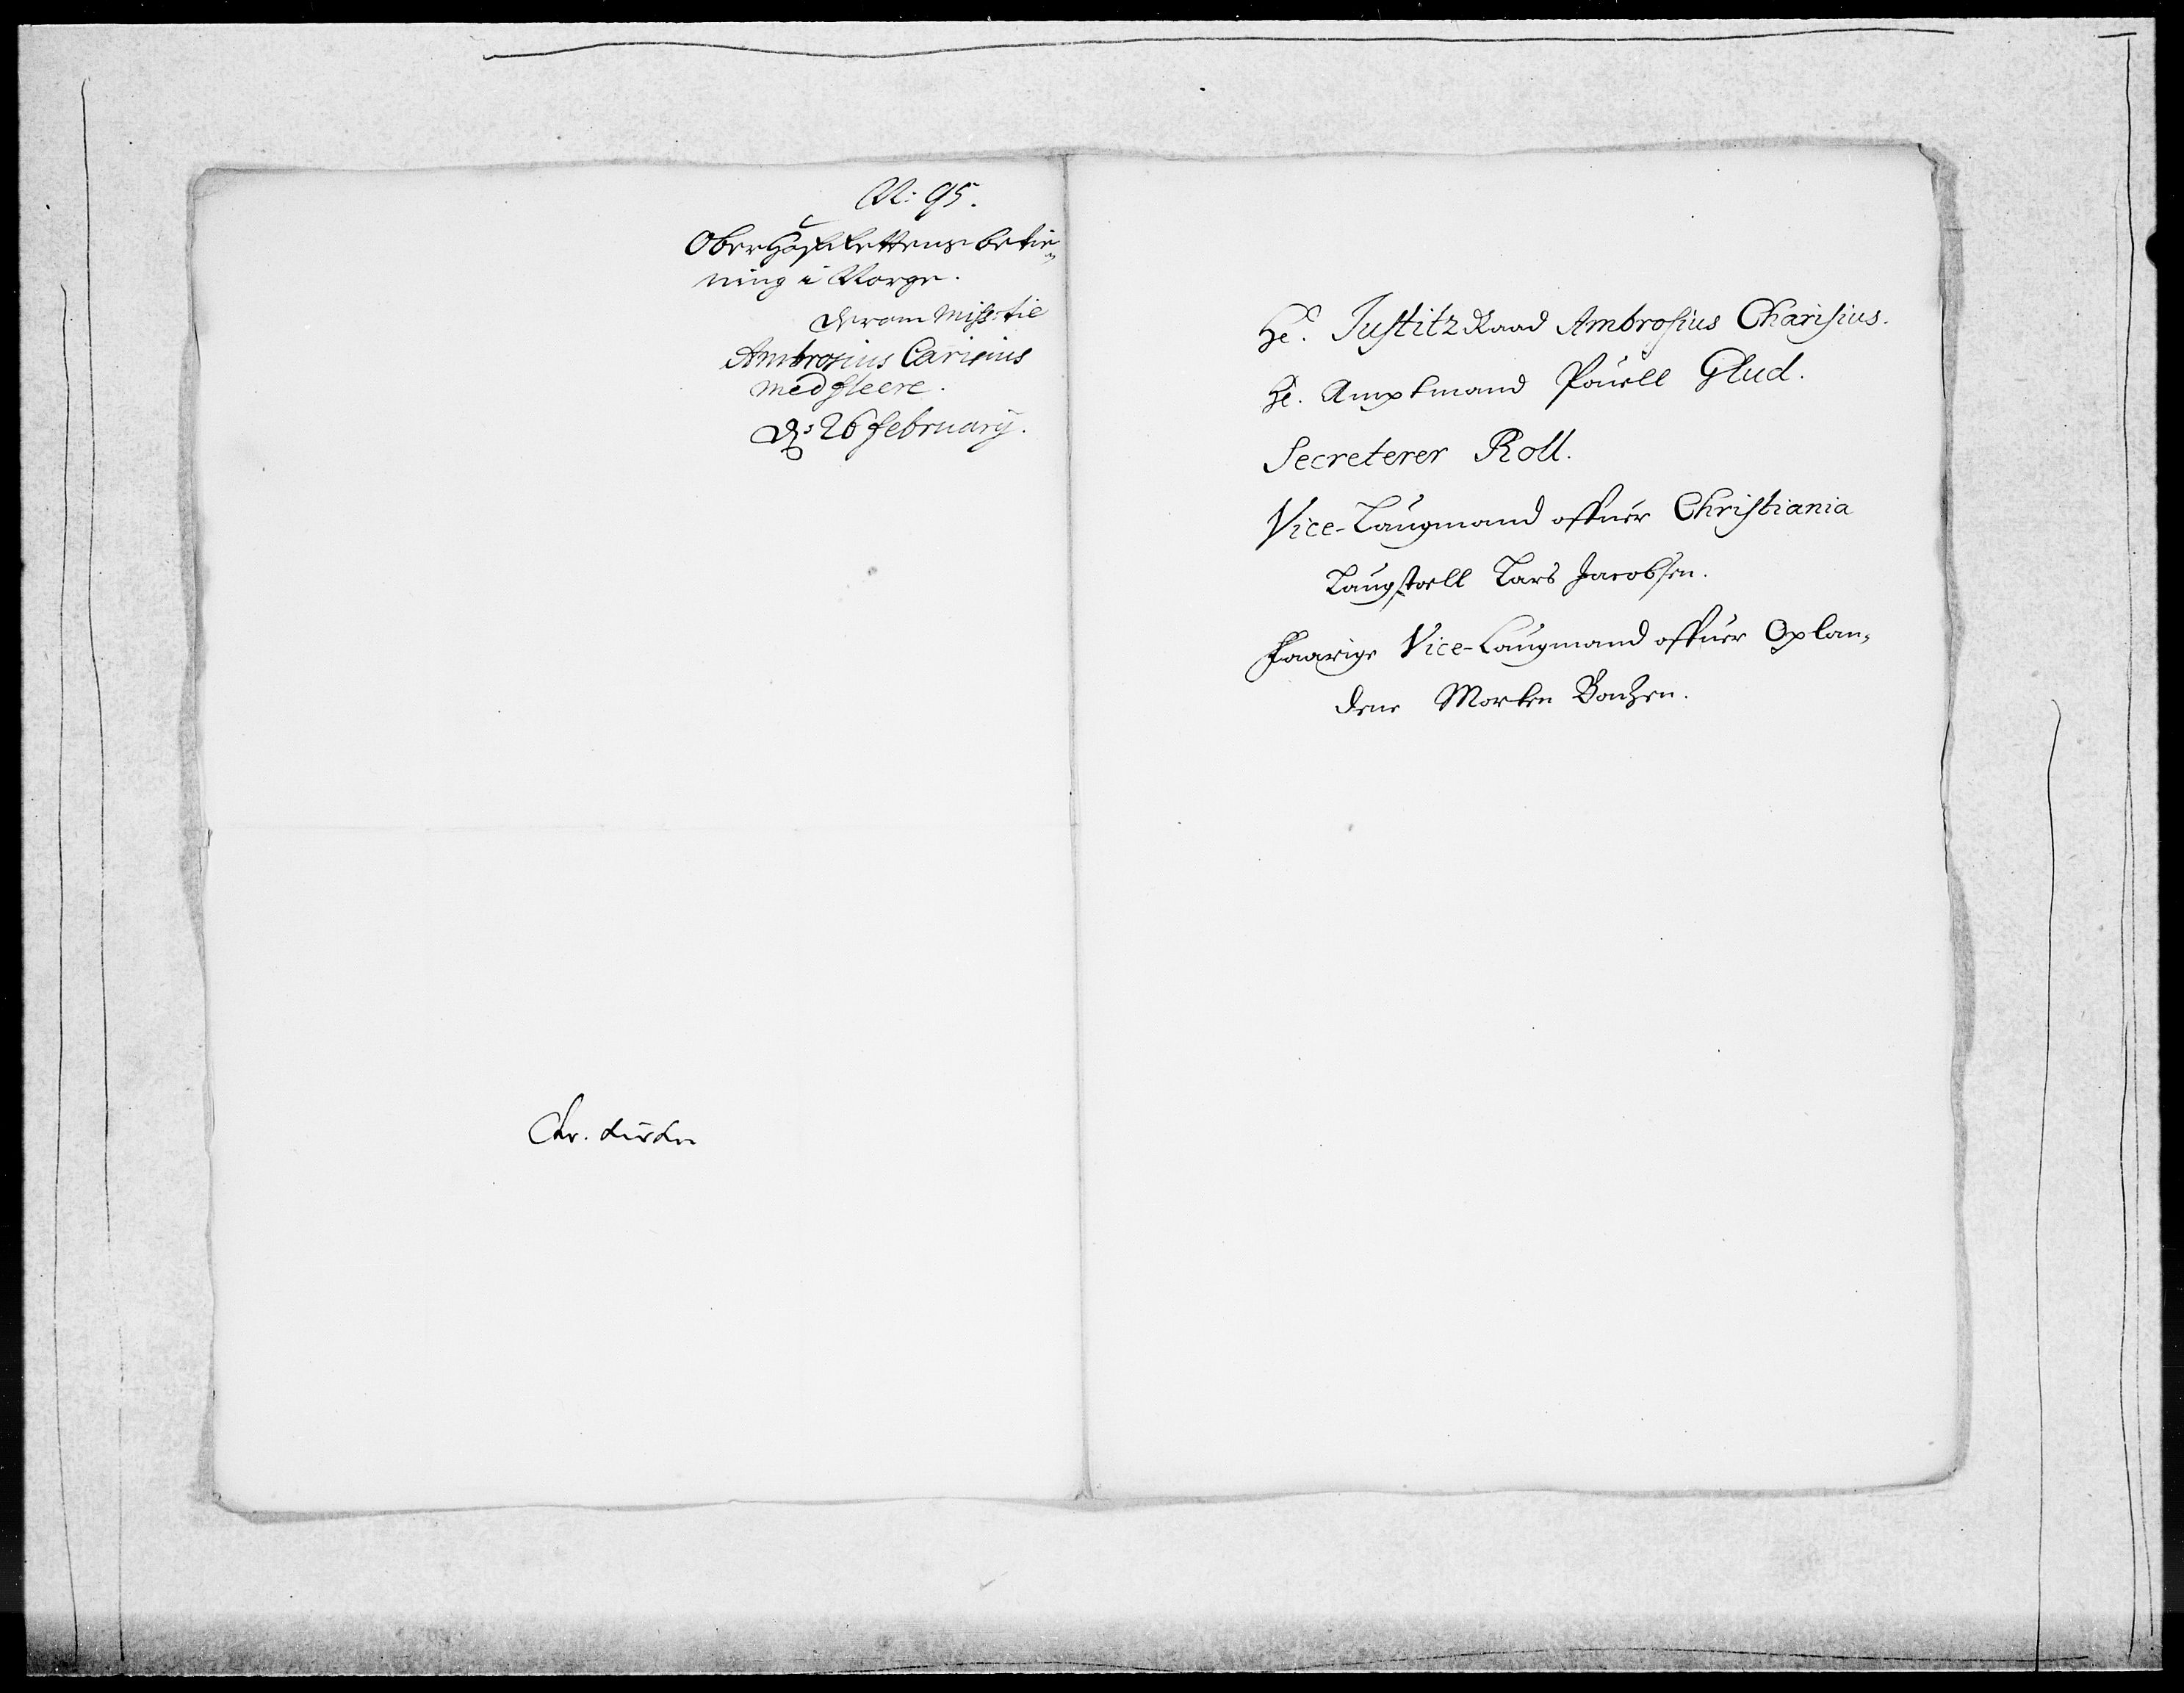 N: 95.
Ober Hoffrettens betie¬
ning i Norge.
Derom Miss: til
Ambrosius Carisius
med fleere.
D: 26 february.
Hr. Justitz Raad Ambrosius Charisius.
Hr. Amptmand Pouell Glud.
Secreterer Roll.
Vice-Laugmand offuer Christiania
Laugstoell Lars Jacobsen.
Forrige Vice-Laugmand offuer Oplan¬
dene Morten